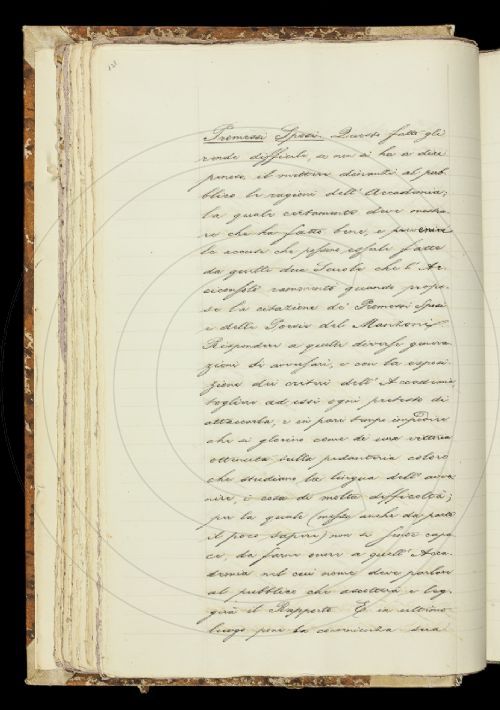 131
Promessi Sposi. Questo fatto gli
rende difficile, e non si ha a dire
penoso, il mettere davanti al pub-
blico le ragioni dell'Accademia;
la quale certamente deve mostra-
re che ha fatto bene, e prevenire
le accuse che possono essere fatte
da quelle due Scuole che l'Ar-
ciconsolo rammentò quando propo-
se la citazione de' Promessi Sposi
e delle Poesie del Manzoni.
Rispondere a quelle diverse genera-
zioni di avversari, e con la esposi-
zione dei criteri dell'Accademia,
togliere ad essi ogni pretesto di
attaccarla, e in pari tempo impedire
che si glorino come di una vittoria
ottenuta sulla pedanteria coloro
che studiano la lingua dell'avve-
nire, è cosa di molta difficoltà;
per la quale (messo anche da parte
il poco sapere) non si sente capa-
ce, da fare onore a quell'Acca-
demia nel cui nome deve parlare
al pubblico che ascolterà e leg-
gerà il Rapporto. E in ultimo
luogo pone la convenienza sua